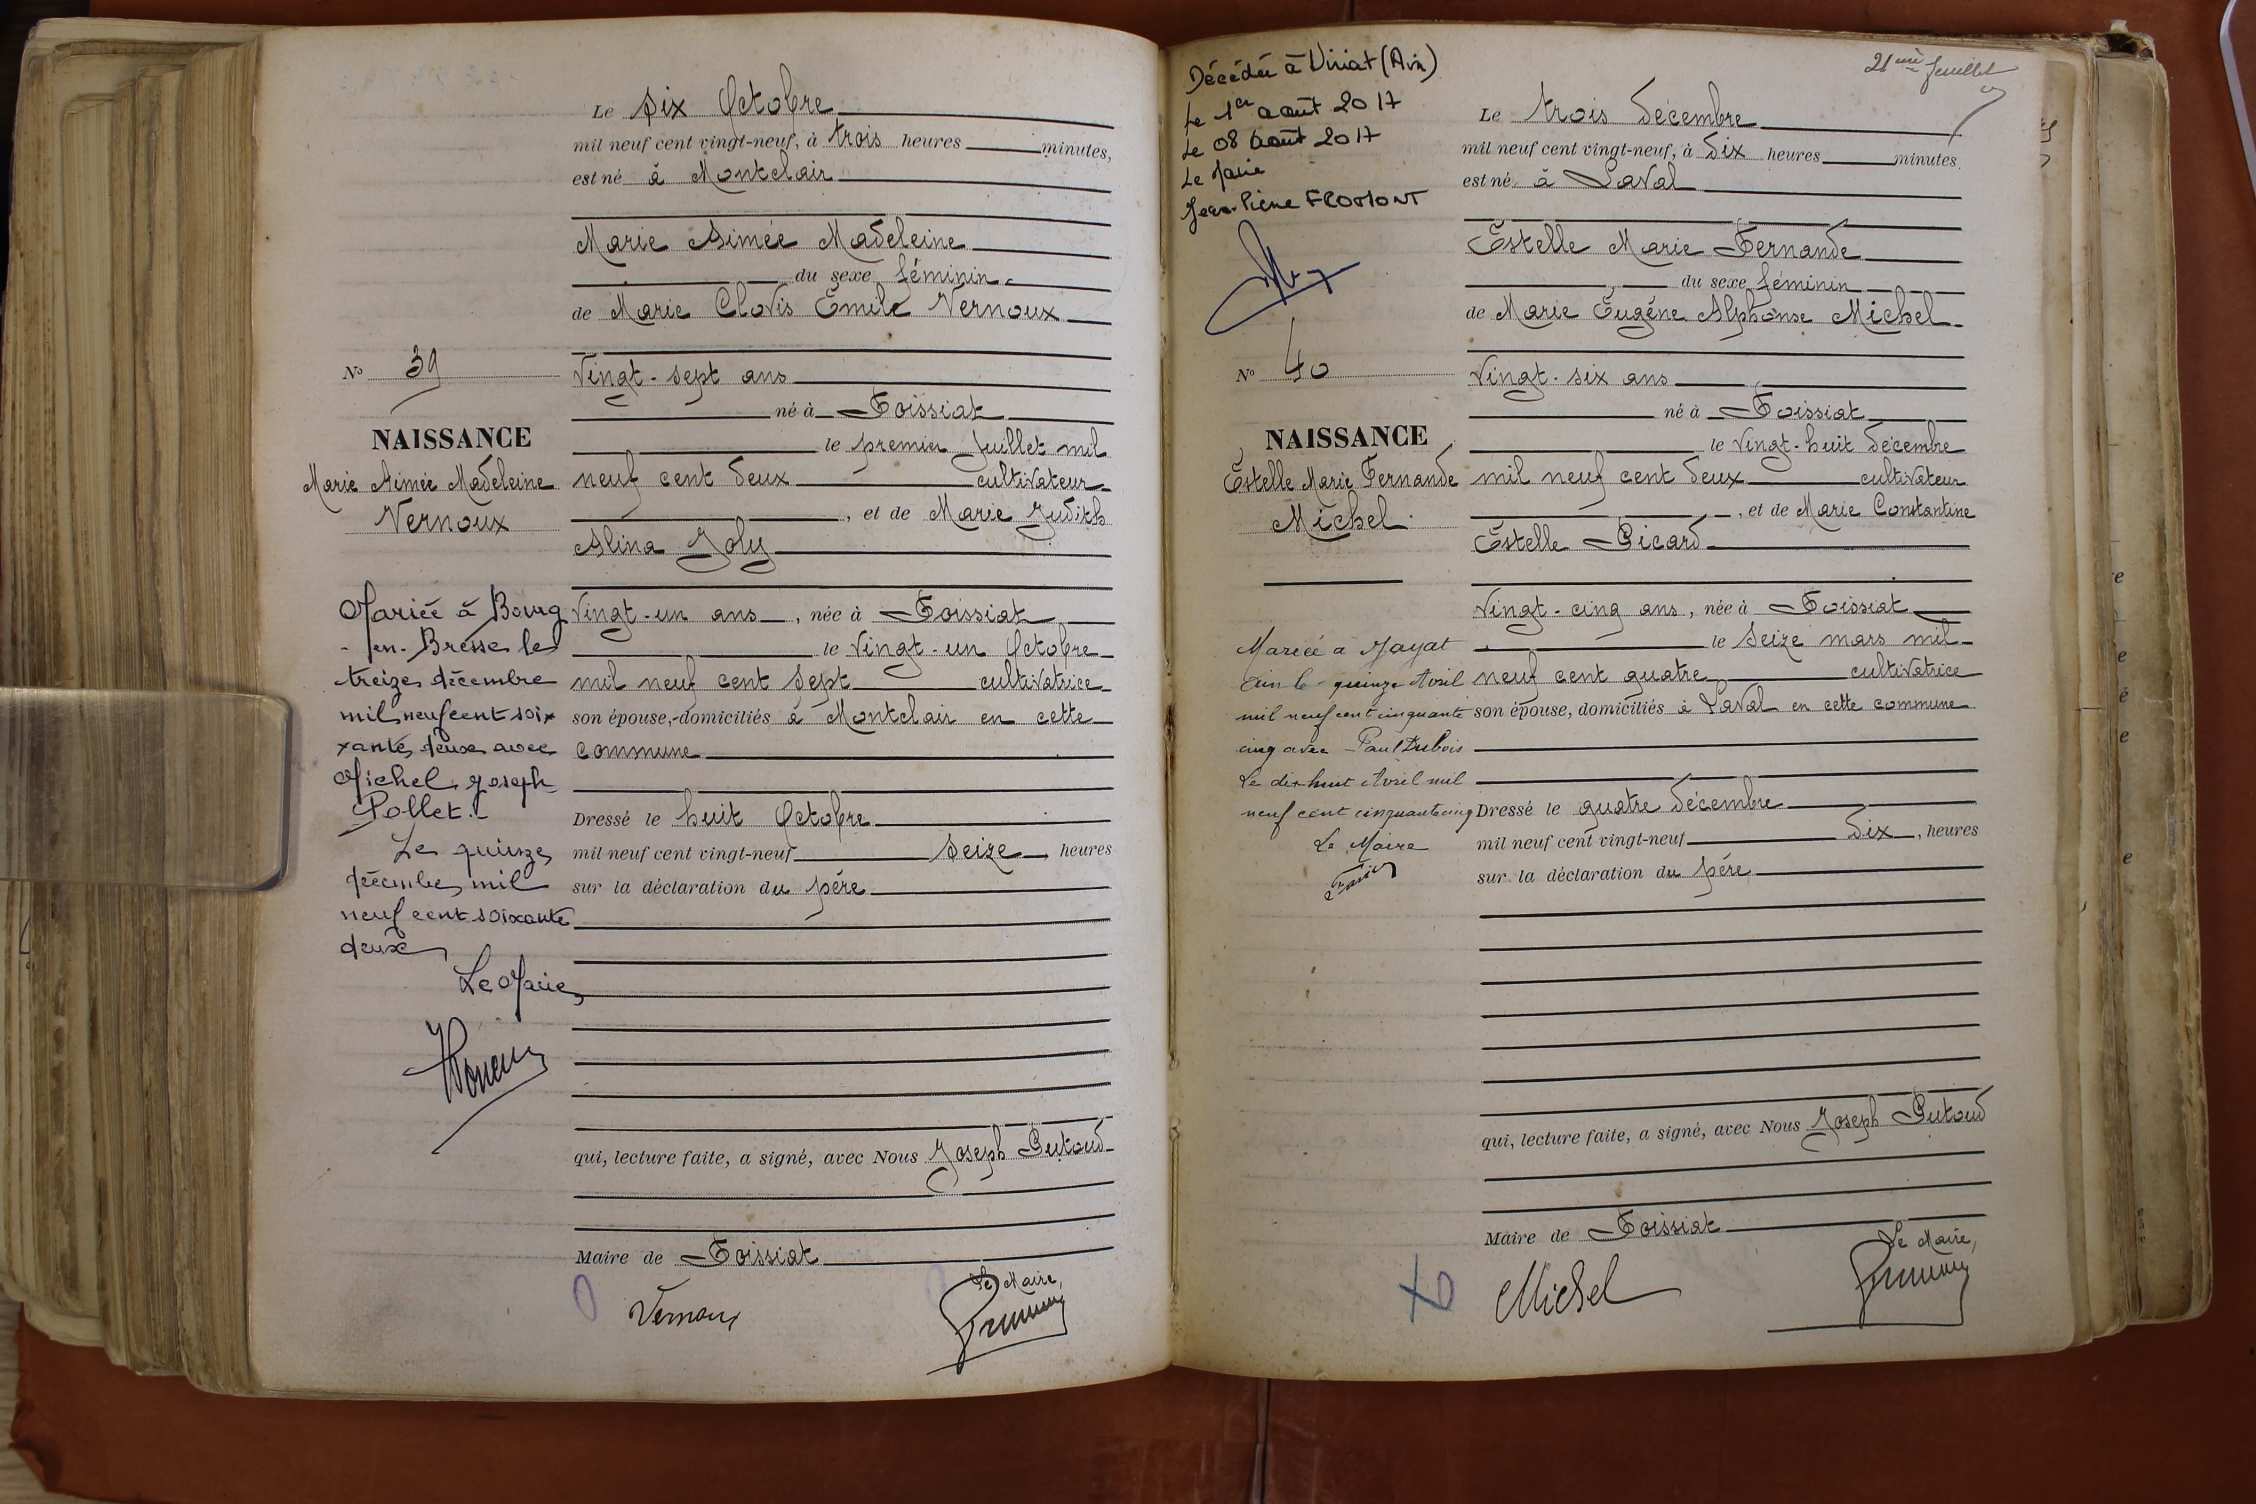 Le six Octobre
mil neuf cent vingt-neuf, à trois heures minutes,
est né à Montclair
Marie Aimée Madeleine
du sexe féminin
de Marie Clovis Emile Vernoux
No 39
Vingt-sept ans
né à Foissiat
NAISSANCE
le premier Juillet mil
Marie Aimée Madeleine
neuf cent deux cultivateur
Vernoux
, et de Marie Judith
Alina Joly
Mariée à Bourg
Vingt-un ans, née à Foissiat
-en-Bresse le
le Vingt-un Octobre
treize décembre
mil neuf cent sept cultivatrice
mil neuf cent soix
son épouse, domiciliés à Montclair en cette
xante deux avec
commune
Michel Joseph
Pollet.
Dressé le huit Octobre
Le quinze
mil neuf cent vingt-neuf seize heures
décembre mil
sur la déclaration du père
neuf cent soixante
deux
Le Maire
qui, lecture faite, a signé, avec Nous Joseph Putoud
Maire de Foissiat
Vernoux
Le Maire,
21me feuillet
Décédée à Viriat (Ain)
Le 1er août 2017
Le 08 août 2017
Le Maire
Jean-Pierre FROMONT
Le trois décembre
mil neuf cent vingt-neuf, à dix heures minutes
est né à Laval
Estelle Marie Fernande
du sexe féminin
de Marie Eugène Alphonse Michel
No 40
Vingt-six ans
né à Foissiat
NAISSANCE
le Vingt-huit décembre
Estelle Marie Fernande
mil neuf cent deux cultivateur
Michel
, et de Marie Constantine
Estelle Picard
Vingt-cinq ans, née à Foissiat
Mariée à Jayat
le seize mars mil
Ain le quinze Avril
neuf cent quatre cultivatrice
mil neuf cent cinquante
son épouse, domiciliés à Laval en cette commune
cinq avec Paul Dubois
Le dix huit Avril mil
neuf cent cinquante cinq
Dressé le quatre décembre
Le Maire
mil neuf cent vingt-neuf dix, heures
sur la déclaration du père
qui, lecture faite, a signé, avec Nous Joseph Putoud
Maire de Foissiat
Michel
Le Maire,